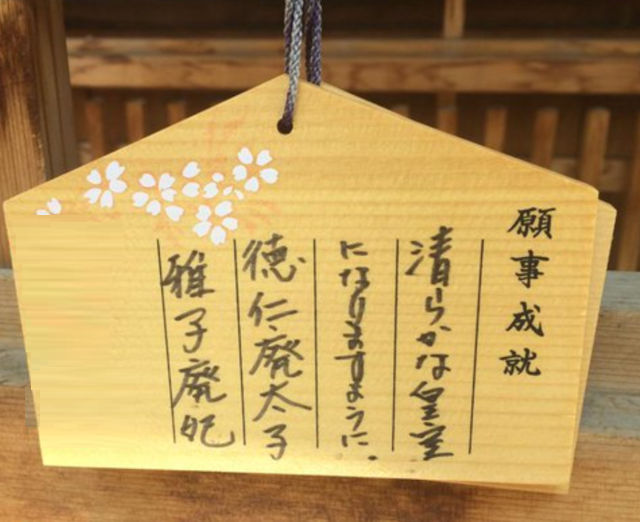 願事成就
清らかな皇室
になりますように
徳仁廃太子
雅子廃妃